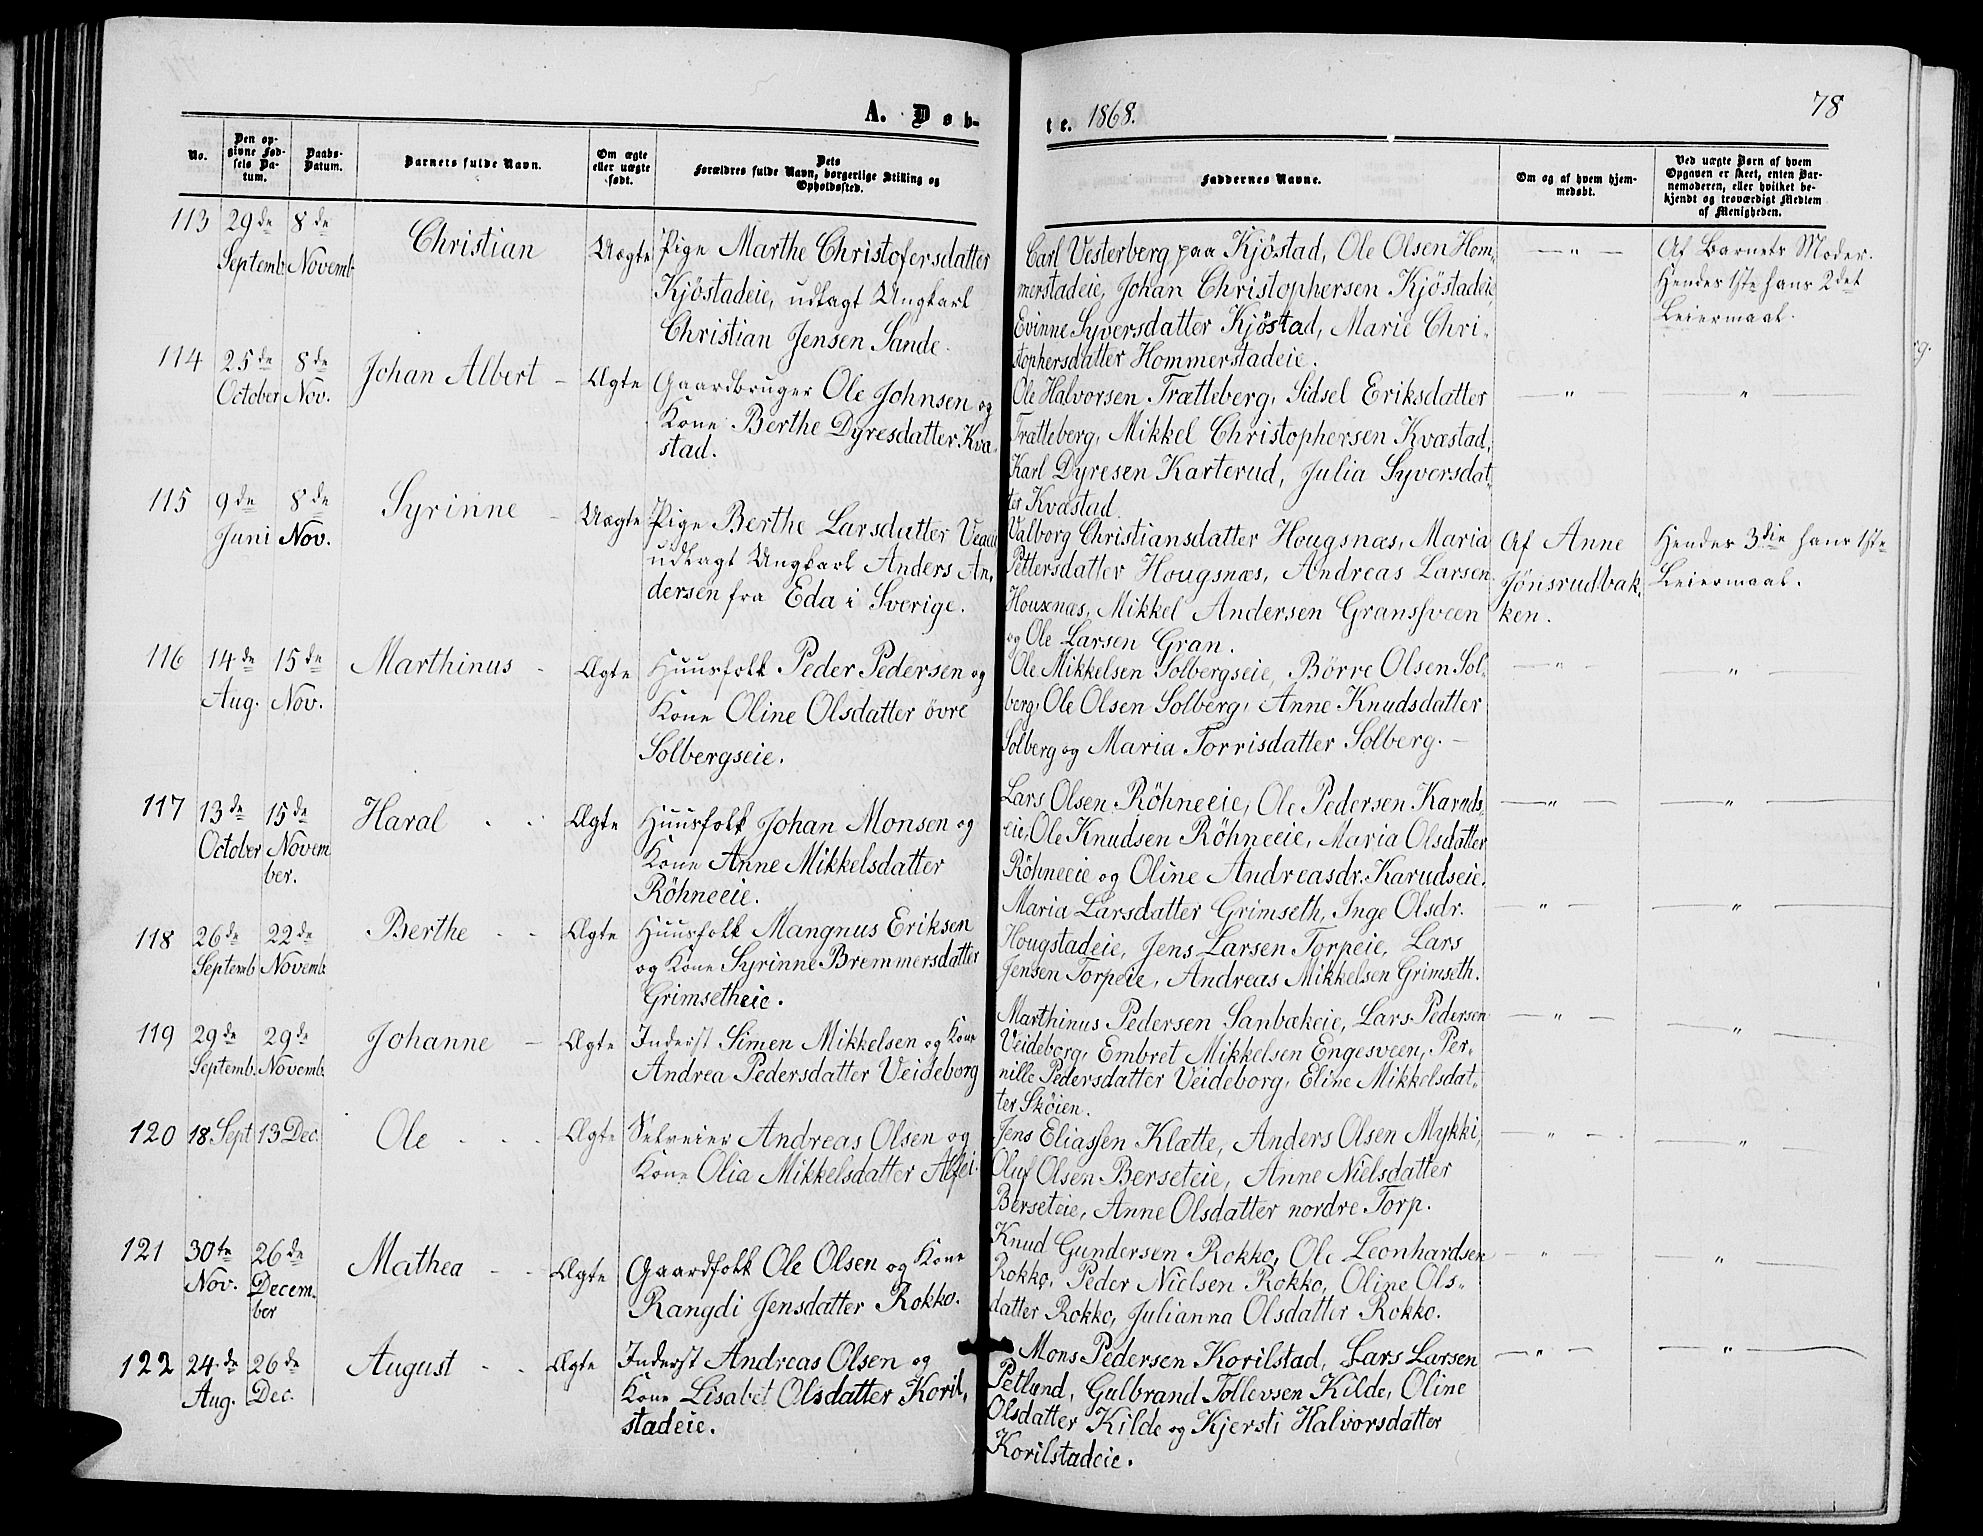 A. Døb-
te. 1868.
78
No.
Den op-
givne Fød-
sels Da-
tum.
Daabs-
Datum.
Barnets fulde Navn.
Om ægte
eller uægte
født.
Dets
Forældres fulde Navn, borgerlige Stilling og
Opholdssted.
Faddernes Navne.
Om og af hvem hjem-
medøbt.
Ved uægte Børn af hvem
Opgaven er skeet, enten Bar-
nemoderen, eller hvilket be-
kjendt og troværdigt Medlem
af Menigheden.
113
29de
Septemb.
8de
Novemb.
Christian
Uægte
Pige Marthe Christofersdatter
Kjöstadeie, udlagt Ungkarl
Christian Jensen Sande.
Carl Vesterberg paa Kjöstad, Ole Olsen Hom-
merstadeie, Johan Christophersen Kjöstadeie
Evinne Syversdatter Kjöstad, Marie Chri-
stophersdatter Hommerstadeie.
— " —
Af Barnets Moder.
Hendes 1ste hans 2det
Leiermaal.
114
25de
October
8de
Nov.
Johan Albert —
Ægte
Gaardbruger Ole Johnsen og
Kone Berthe Dyresdatter Kvæ-
stad.
Ole Halvorsen Trætteberg, Sidsel Eriksdatter
Trætteberg, Mikkel Christophersen Kvæstad,
Karl Dyresen Karterud, Julia Syversdat-
ter Kvæstad.
— " —
— " —
115
9de
Juni
8de
Nov.
Syrinne —
Uægte
Pige Berthe Larsdatter
udlagt Ungkarl Anders An-
dersen fra Eda i Sverige.
Valborg Christiansdatter Hougsnæs, Maria
Pettersdatter Hougsnæs, Andreas Larsen
Houxnæs, Mikkel Andersen Granssveen
og Ole Larsen Gran.
Af Anne
Jönsrudbak-
ken.
Hendes 3die hans 1ste
Leiermaal.
116
14de
Aug.
15de
Nov.
Marthinus -
Ægte
Huusfolk Peder Pedersen og
Kone Oline Olsdatter övre
Solbergseie.
Ole Mikkelsen Solbergseie, Börre Olsen Sol-
berg, Ole Olsen Solberg, Anne Knudsdatter
Solberg og Maria Torrisdatter Solberg. —
— " —
— " —
117
13de
October
15de
Novem
ber.
Haral - -
Ægte
Huusfolk Johan Monsen og
Kone Anne Mikkelsdatter
Röhneeie.
Lars Olsen Röhneeie, Ole Pedersen Karuds-
eie, Ole Knudsen Röhneeie, Maria Olsdatter
Röhneeie og Oline Andreasdr. Karudseie.
— " —
— " —
118
26de
Septemb
22de
Novemb.
Berthe - -
Ægte
Huusfolk Mangnus Eriksen
og Kone Syrinne Bremmersdatter
Grimsetheie.
Maria Larsdatter Grimseth, Inge Olsdr.
Hougstadeie, Jens Larsen Torpeie, Lars
Jensen Torpeie, Andreas Mikkelsen Grimseth.
— " —
— " —
119
29de
Septemb.
29de
Novemb.
Johanne —
Ægte
Inderst Simen Mikkelsen og Kone
Andrea Pedersdatter Veideborg
Marthinus Pedersen Sanbækeie, Lars Pedersen
Veideborg, Embret Mikkelsen Engesveen, Per-
nille Pedersdatter Veideborg, Eline Mikkelsdat-
ter Sköien.
— " —
— " —
120
18 Sept
13 Dec.
Ole - - -
Ægte
Selveier Andreas Olsen og
Kone Olia Mikkelsdatter
Jens Eliassen Klætte, Anders Olsen Mykki,
Oluf Olsen Berseteie, Anne Nielsdatter
Berseteie, Anne Olsdatter nordre Torp.
— " —
— " —
121
30te
Nov.
26de
Decem-
ber
Mathea - -
Ægte
Gaardfolk Ole Olsen og Kone
Rangdi Jensdatter Rokko.
Knud Gundersen Rokko, Ole Leonhardsen
Rokko, Peder Nielsen Rokko, Oline Ols-
datter Rokko, Julianna Olsdatter Rokko.
— " —
— " —
122
24de
Aug.
26de
Dec.
August - -
Ægte
Inderst Andreas Olsen og
Kone Lisabet Olsdatter Koril-
stadeie.
Mons Pedersen Korilstad, Lars Larsen
Petlund, Gulbrand Tollevsen Kilde, Oline
Olsdatter Kilde og Kjersti Halvorsdatter
Korilstadeie.
— " —
— " —